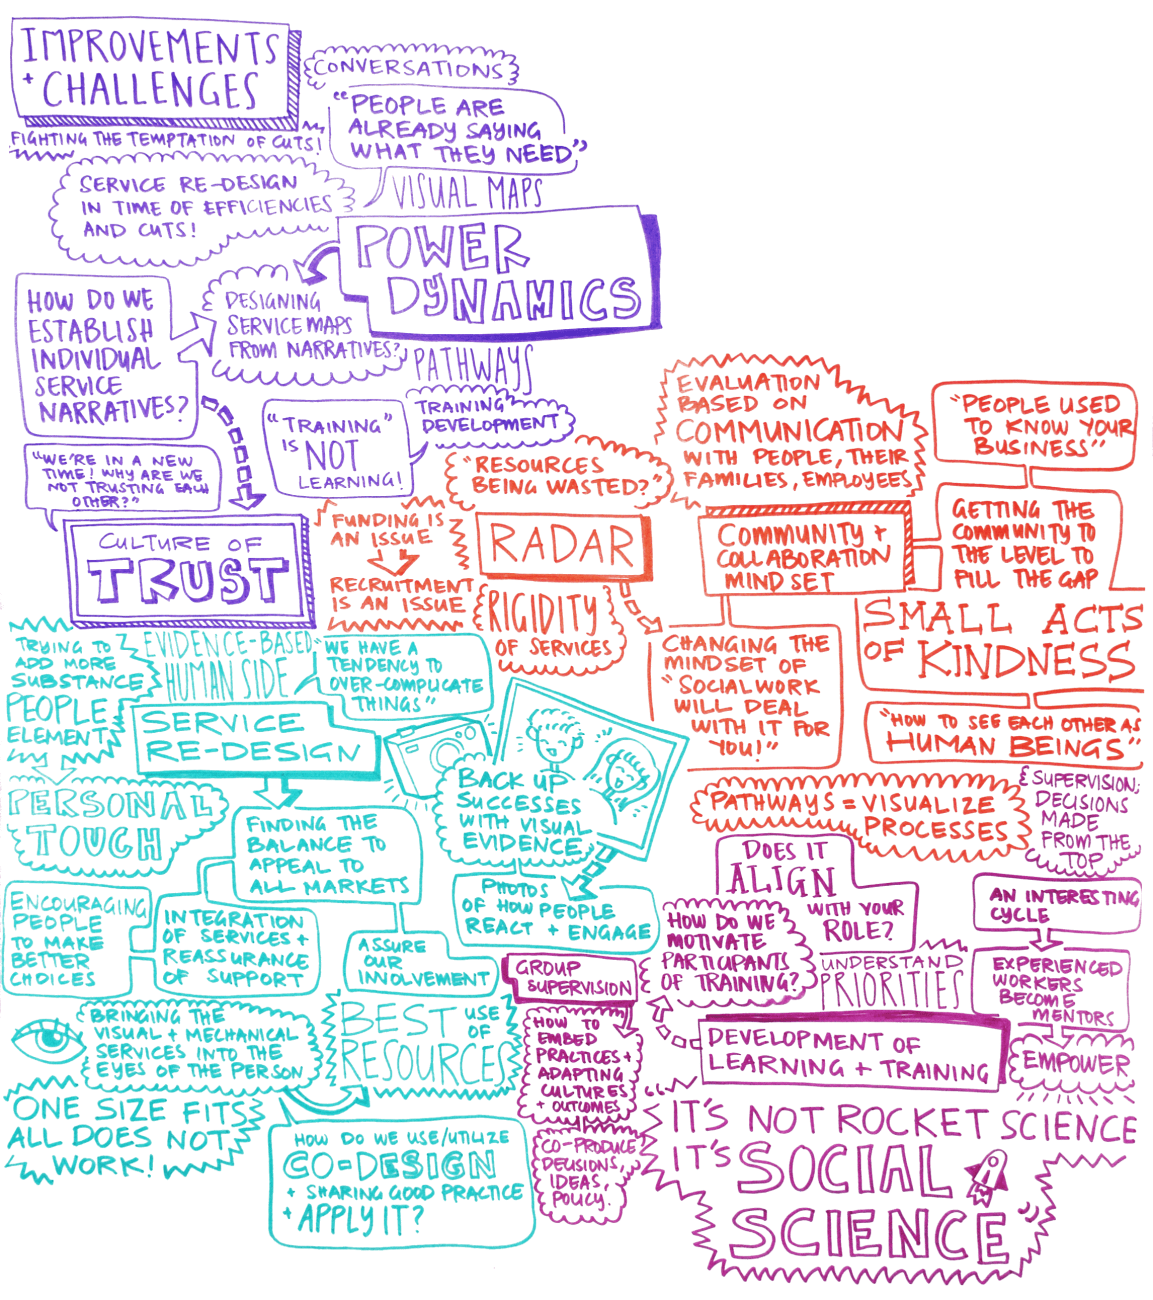 IMPROVEMENTS
+ CHALLENGES
FIGHTING THE TEMPTATION OF CUTS!
CONVERSATIONS
"PEOPLE ARE
ALREADY SAYING
WHAT THEY NEED"
SERVICE RE-DESIGN
IN TIME OF EFFICIENCIES
AND CUTS!
VISUAL MAPS
POWER
DYNAMICS
HOW DO WE
ESTABLISH
INDIVIDUAL
SERVICE
NARRATIVES?
DESIGNING
SERVICE MAPS
FROM NARRATIVES?
PATHWAYS
TRAINING
DEVELOPMENT
"TRAINING"
IS NOT
LEARNING!
"WE'RE IN A NEW
TIME! WHY ARE WE
NOT TRUSTING EACH
OTHER?"
CULTURE OF
TRUST
"RESOURCES
BEING WASTED?"
FUNDING IS
AN ISSUE
RECRUITMENT
IS AN ISSUE
RADAR
RIGIDITY
OF SERVICES
EVALUATION
BASED ON
COMMUNICATION
WITH PEOPLE, THEIR
FAMILIES, EMPLOYEES
COMMUNITY +
COLLABORATION
MIND SET
"PEOPLE USED
TO KNOW YOUR
BUSINESS"
GETTING THE
COMMUNITY TO
THE LEVEL TO
FILL THE GAP
SMALL ACTS
OF KINDNESS
CHANGING THE
MINDSET OF
"SOCIAL WORK
WILL DEAL
WITH IT FOR
YOU!"
"HOW TO SEE EACH OTHER AS
HUMAN BEINGS"
PATHWAYS = VISUALIZE
PROCESSES
TRYING TO
ADD MORE
SUBSTANCE
PEOPLE
ELEMENT
EVIDENCE-BASED
HUMAN SIDE
"WE HAVE A
TENDENCY TO
OVER-COMPLICATE
THINGS"
SERVICE
RE-DESIGN
PERSONAL
TOUCH
FINDING THE
BALANCE TO
APPEAL TO
ALL MARKETS
BACK UP
SUCCESSES
WITH VISUAL
EVIDENCE
PHOTOS
OF HOW PEOPLE
REACT + ENGAGE
ENCOURAGING
PEOPLE
TO MAKE
BETTER
CHOICES
INTEGRATION
OF SERVICES +
REASSURANCE
OF SUPPORT
ASSURE
OUR
INVOLVEMENT
BRINGING THE
VISUAL + MECHANICAL
SERVICES INTO THE
EYES OF THE PERSON
BEST USE
OF
RESOURCES
ONE SIZE FITS
ALL DOES NOT
WORK!
HOW DO WE USE/UTILIZE
CO-DESIGN
+ SHARING GOOD PRACTICE
+ APPLY IT?
SUPERVISION;
DECISIONS
MADE
FROM THE
TOP
DOES IT
ALIGN
WITH YOUR
ROLE?
AN INTERESTING
CYCLE
HOW DO WE
MOTIVATE
PARTICIPANTS
OF TRAINING?
UNDERSTAND
PRIORITIES
EXPERIENCED
WORKERS
BECOME
MENTORS
EMPOWER
GROUP
SUPERVISION
HOW TO
EMBED
PRACTICES +
ADAPTING
CULTURES
+ OUTCOMES
CO-PRODUCE
DECISIONS,
IDEAS,
POLICY.
DEVELOPMENT OF
LEARNING + TRAINING
"IT'S NOT ROCKET SCIENCE
IT'S SOCIAL
SCIENCE"